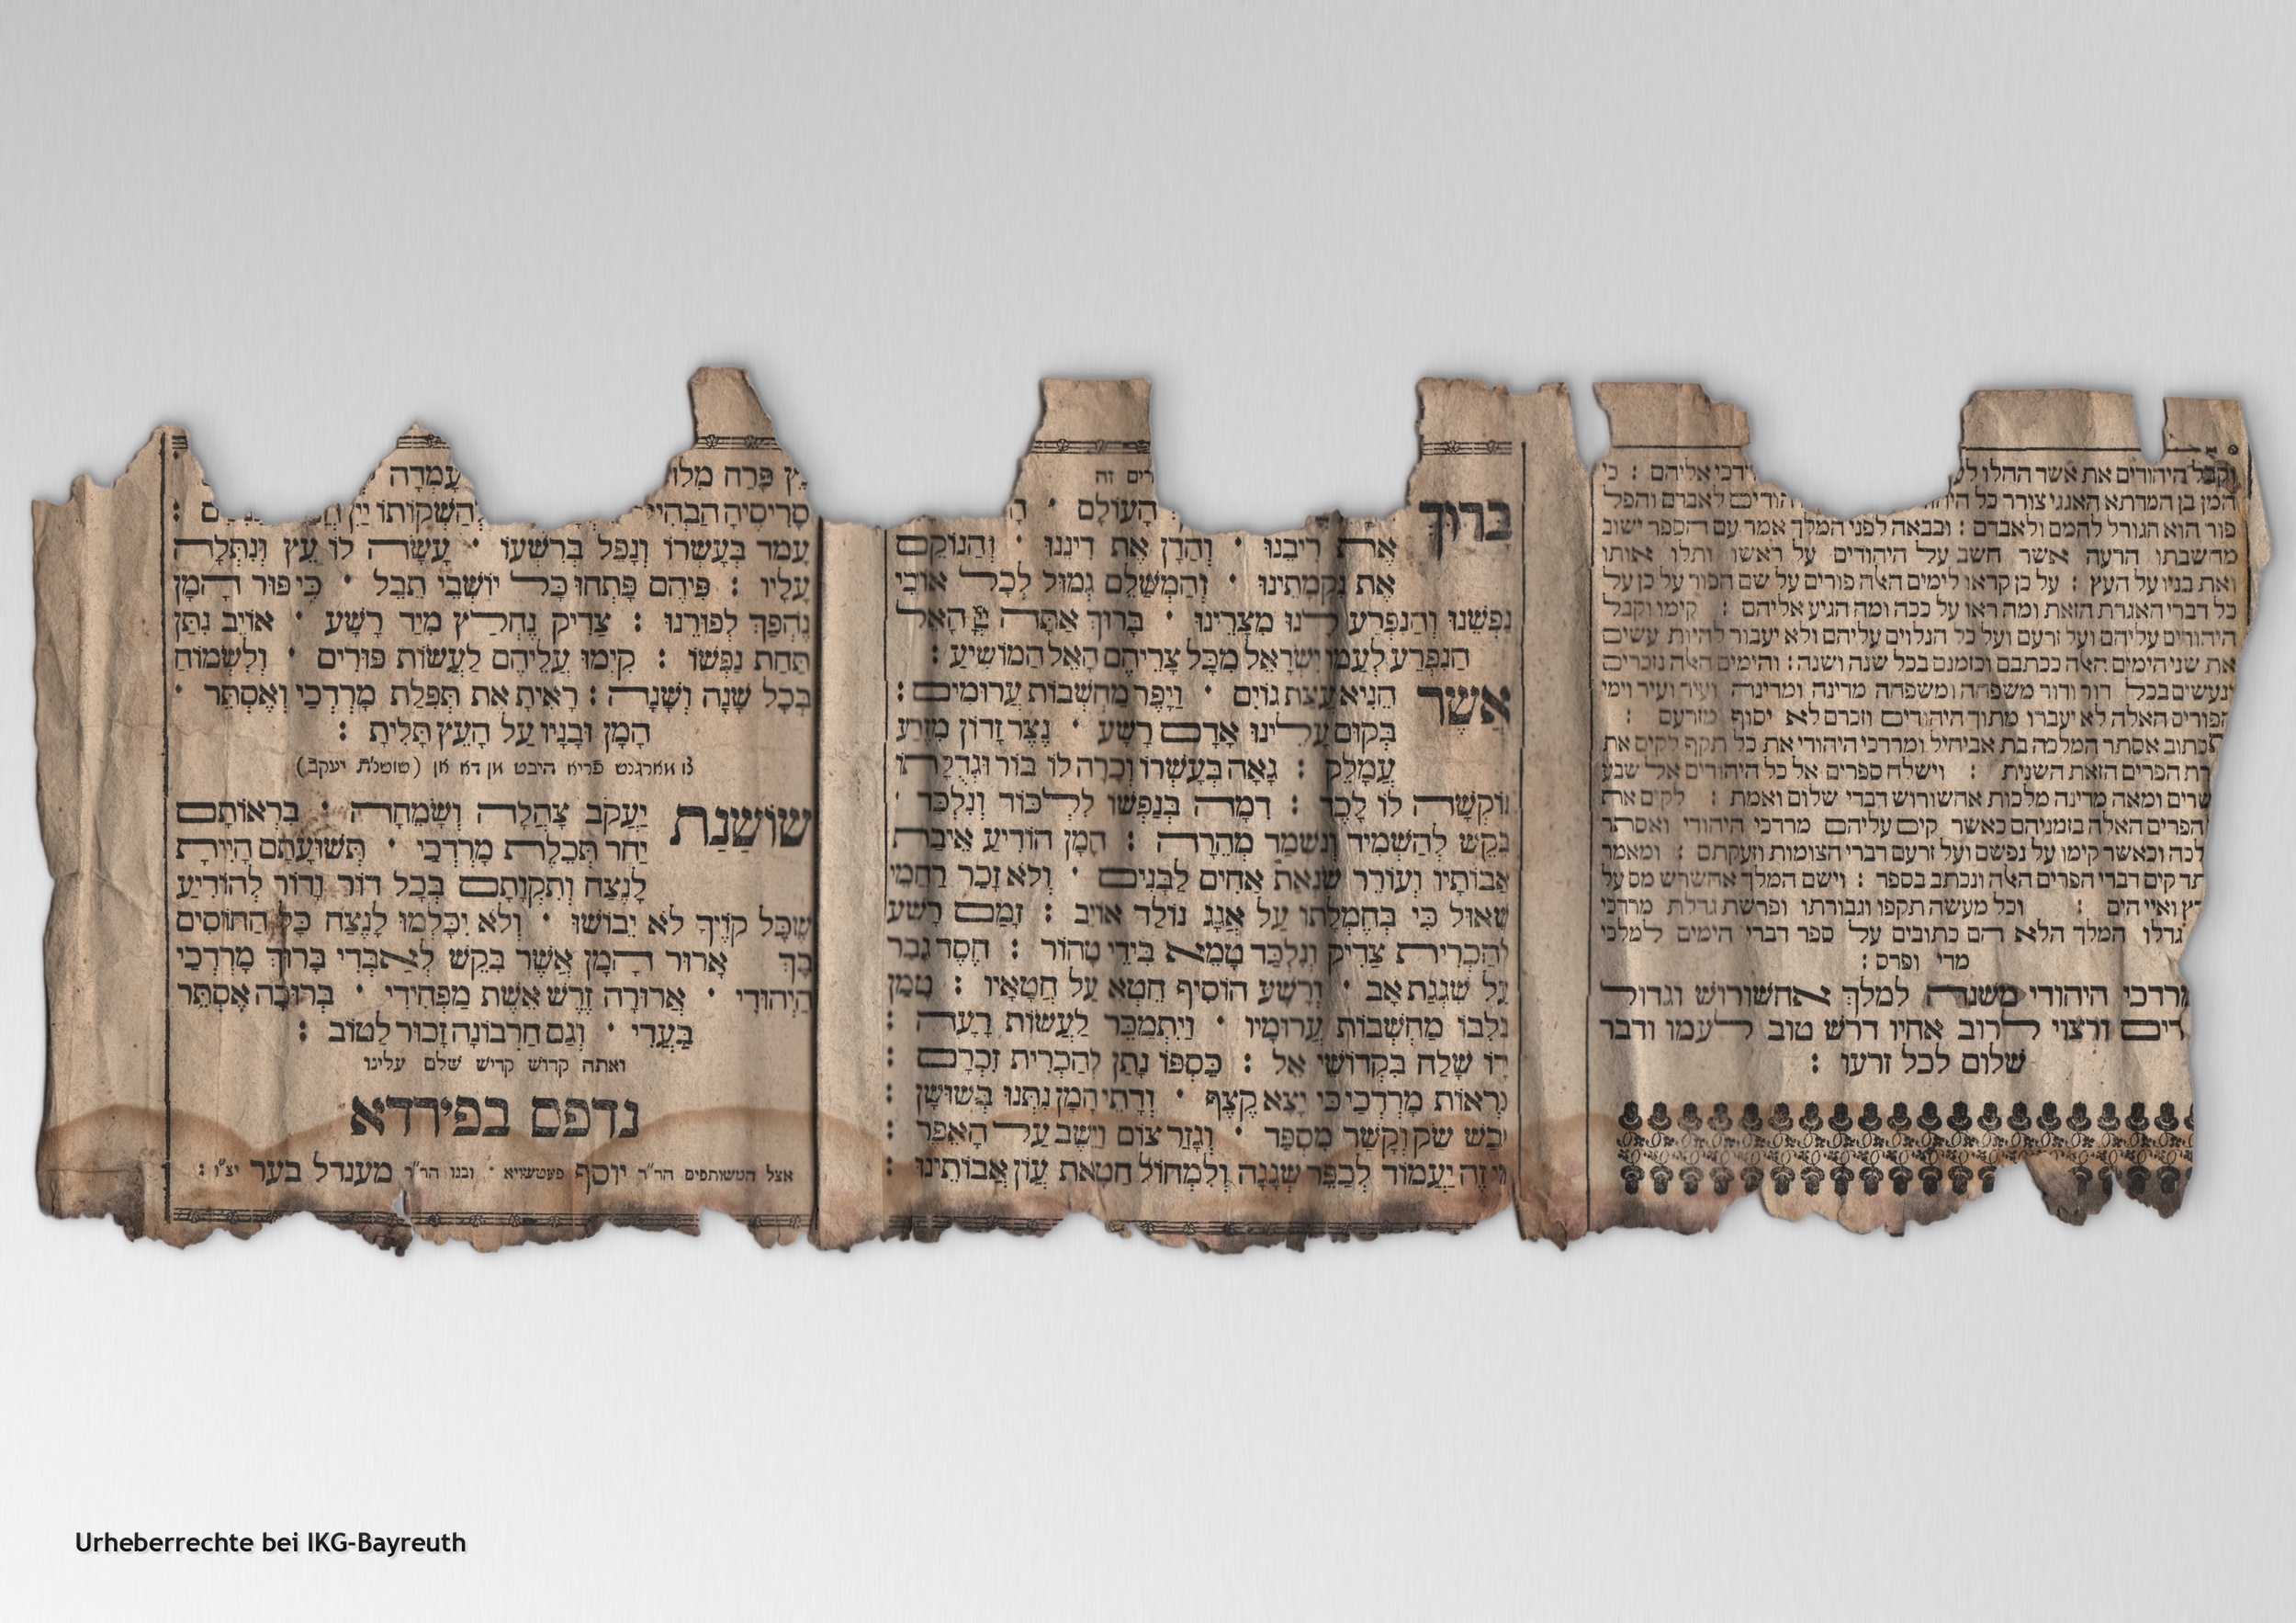 וקבל היהודים את אשר החלו דכי אליהם : כי
המן בן המדתא האגגי צורר כל היהודים לאבדם והפל
פור הוא הגורל להמם ולאבדם : ובבאה לפני המלך אמר עם הספר ישוב
מחשבתו הרעה אשר חשב על היהודים על ראשו ותלו אותו
ואת בניו על העץ : על כן קראו לימים האלה פורים על שם הפור על כן על
כל דברי האגרת הזאת ומה ראו על ככה ומה הגיע אליהם : קימו וקבל
היהודים עליהם ועל זרעם ועל כל הנלוים עליהם ולא יעבור להיות עשים
את שני הימים האלה ככתבם וכזמנם בכל שנה ושנה : והימים האלה נזכרים
ונעשים בכל דור ודור משפחה ומשפחה מדינה ומדינה ועיר ועיר וימי
הפורים האלה לא יעברו מתוך היהודים וזכרם לא יסוף מזרעם :
כתוב אסתר המלכה בת אביחיל ומרדכי היהודי את כל תקף לקים את
רת הפרים הזאת השנית : וישלח ספרים אל כל היהודים אל שבע
שרים ומאה מדינה מלכות אחשורוש דברי שלום ואמת : לקים את
הפרים האלה בזמניהם כאשר קים עליהם מרדכי היהודי ואסתר
לכה וכאשר קימו על נפשם ועל זרעם דברי הצומות וזעקתם : ומאמר
תר קים דברי הפרים האלה ונכתב בספר : וישם המלך אחשרש מס על
ץ ואיי הים : וכל מעשה תקפו וגבורתו ופרשת גדלת מרדכי
גדלו המלך הלא הם כתובים על ספר דברי הימים למלכי
מדי ופרס :
מרדכי היהודי משנה למלך אחשורוש וגדול
דים ורצוי לרוב אחיו דרש טוב לעמו ודבר
שלום לכל זרעו :
רים זה
בָּרוּךְ הָעוֹלָם ·
אֶת רִיבֵנוּ · וְהַדָּן אֶת דִּינֵנוּ · וְהַנּוֹקֵם
אֶת נִקְמָתֵינוּ · וְהַמְשַׁלֵּם גְּמוּל לְכָל אוֹבֵי
נַפְשֵׁנוּ וְהַנִּפְרָע לָנוּ מִצָּרֵינוּ · בָּרוּךְ אַתָּה יְיָ הָאֵל
הַנִּפְרָע לְעַמּוֹ יִשְׂרָאֵל מִכָּל צָרֵיהֶם הָאֵל הַמּוֹשִׁיעַ :
אֲשֶׁר הֵנִיא עֲצַת גּוֹיִם · וַיָּפֶר מַחְשְׁבוֹת עֲרוּמִים :
בְּקוּם עָלֵינוּ אָדָם רָשָׁע · נֵצֶר זָדוֹן מִזֶּרַע
עֲמָלֵק : גָּאָה בְּעָשְׁרוֹ וְכָרָה לוֹ בּוֹר וּגְדֻלָּתוֹ
יוֹקְשָׁה לוֹ לָכֶד : דִּמָּה בְנַפְשׁוֹ לִלְכּוֹד וְנִלְכַּד ·
בִּקֵּשׁ לְהַשְׁמִיד וְנִשְׁמַד מְהֵרָה : הָמָן הוֹדִיעַ אֵיבַת
אֲבוֹתָיו וְעוֹרֵר שִׂנְאַת אַחִים לַבָּנִים · וְלֹא זָכַר רַחֲמֵי
שָׁאוּל כִּי בְחֶמְלָתוֹ עַל אֲגָג נוֹלַד אוֹיֵב : זָמַם רָשָׁע
לְהַכְרִית צַדִּיק וְנִלְכַּד טָמֵא בִּידֵי טָהוֹר : חֶסֶד גָּבַר
עַל שִׁגְגַת אָב · וְרָשָׁע הוֹסִיף חֵטְא עַל חֲטָאָיו : טָמַן
בְּלִבּוֹ מַחְשְׁבוֹת עֲרוּמָיו · וַיִּתְמַכֵּר לַעֲשׂוֹת רָעָה :
יָדוֹ שָׁלַח בִּקְדוֹשֵׁי אֵל : כַּסְפּוֹ נָתַן לְהַכְרִית זִכְרָם :
כִּרְאוֹת מָרְדְּכַי כִּי יָצָא קֶצֶף · וְדָתֵי הָמָן נִתְּנוּ בְשׁוּשָׁן :
לָבַשׁ שַׂק וְקָשַׁר מִסְפֵּד · וְגָזַר צוֹם וַיֵּשֶׁב עַל הָאֵפֶר :
מִי זֶה יַעֲמוֹד לְכַפֵּר שְׁגָגָה וְלִמְחוֹל חַטַּאת עֲוֹן אֲבוֹתֵינוּ :
נֵץ פָּרַח מִלּוּ עָמְדָה
סָרִיסֶיהָ הִבְהִי לְהַשְׁקוֹתוֹ יֵין
עָמַד בְּעָשְׁרוֹ וְנָפַל בְּרִשְׁעוֹ · עָשָׂה לוֹ עֵץ וְנִתְלָה
עָלָיו : פִּיהֶם פָּתְחוּ כָּל יוֹשְׁבֵי תֵבֵל · כִּי פוּר הָמָן
נֶהְפַּךְ לְפוּרֵנוּ : צַדִּיק נֶחֱלַץ מִיַּד רָשָׁע · אוֹיֵב נִתַּן
תַּחַת נַפְשׁוֹ : קִימוּ עֲלֵיהֶם לַעֲשׂוֹת פּוּרִים · וְלִשְׂמוֹחַ
בְּכָל שָׁנָה וְשָׁנָה : רָאִיתָ אֶת תְּפִלַּת מָרְדְּכַי וְאֶסְתֵּר ·
הָמָן וּבָנָיו עַל הָעֵץ תָּלִיתָ :
צו מארגנט פריא היבט מן דא אן (שושנת יעקב)
שׁוֹשַׁנַת יַעֲקֹב צָהֲלָה וְשָׂמֵחָה · בִּרְאוֹתָם
יַחַד תְּכֵלֶת מָרְדְּכַי · תְּשׁוּעָתָם הָיִיתָ
לָנֶצַח וְתִקְוָתָם בְּכָל דּוֹר וָדוֹר לְהוֹדִיעַ
שֶׁכָּל קוֶֹיךָ לֹא יֵבוֹשׁוּ · וְלֹא יִכָּלְמוּ לָנֶצַח כָּל הַחוֹסִים
בָּךְ אָרוּר הָמָן אֲשֶׁר בִּקֵּשׁ לְאַבְּדִי בָּרוּךְ מָרְדְּכַי
הַיְהוּדִי · אֲרוּרָה זֶרֶשׁ אֵשֶׁת מַפְחִידִי · בְּרוּכָה אֶסְתֵּר
בַּעֲדִי · וְגַם חַרְבוֹנָה זָכוּר לַטּוֹב :
ואתה קדוש קדיש שלם עלינו
נדפס בפיורדא
אצל המשותפים הר״ר יוסף פעטשויא · ובנו הר״ר מענדל בער יצ״ו :
Urheberrechte bei IKG-Bayreuth